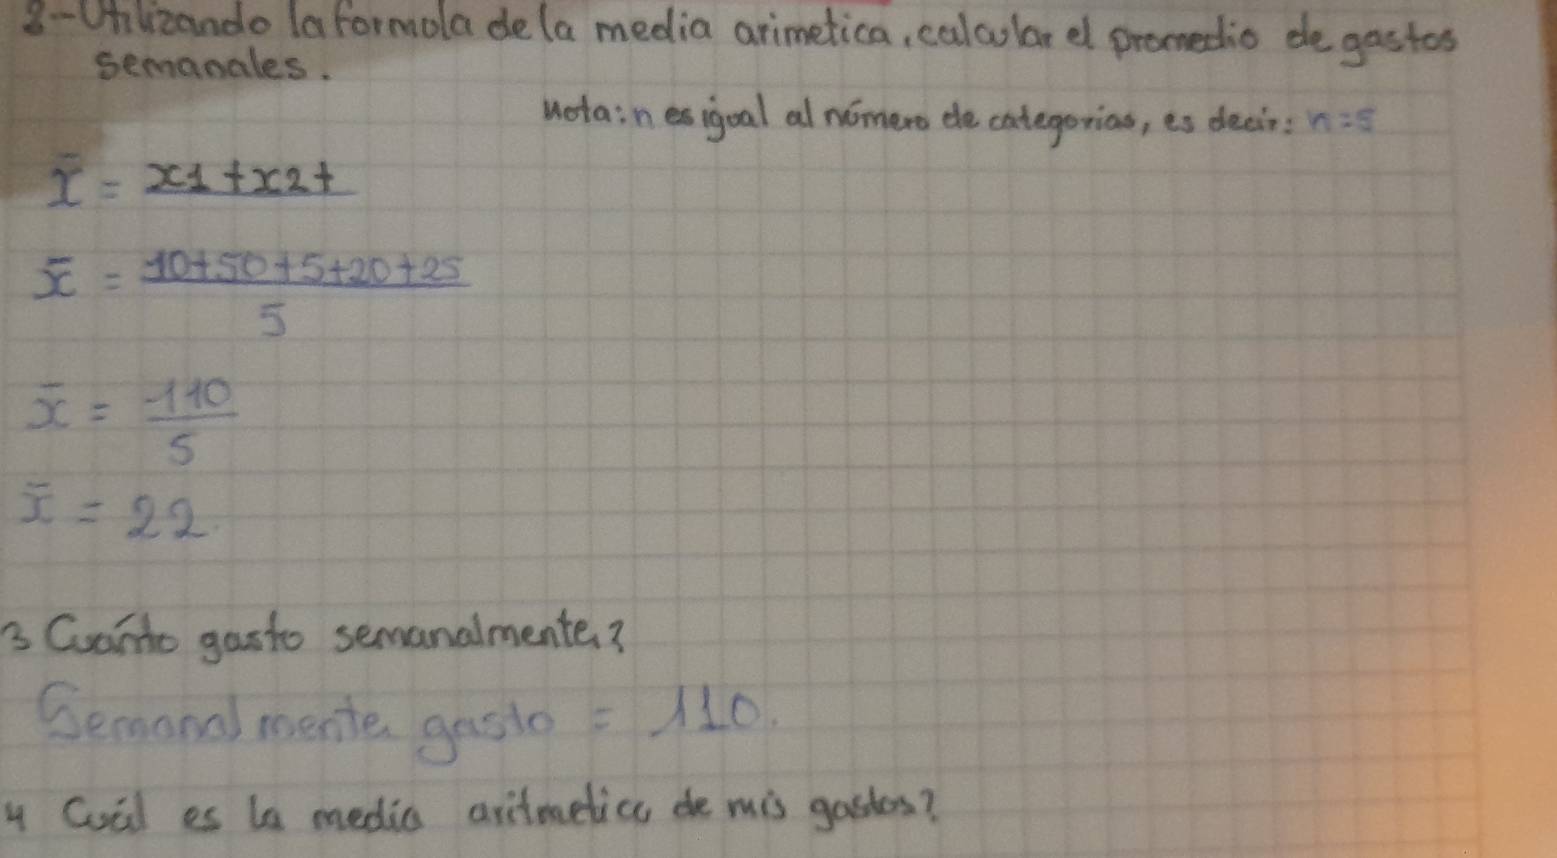 2-Utilizando la formola de la media arimetica, calcular el promedio de gastos
semanales.
Nota: n es igual al número de categorias, es decir: n=5
x̄ = x1+x2+
x̄ = 10+50+5+20+25
5
x̄ = 110
5
x̄ = 22.
3 Cuánto gasto semanalmente?
Semanalmente gasto = 110.
4 Cuál es la media aritmetica de mis gastos?